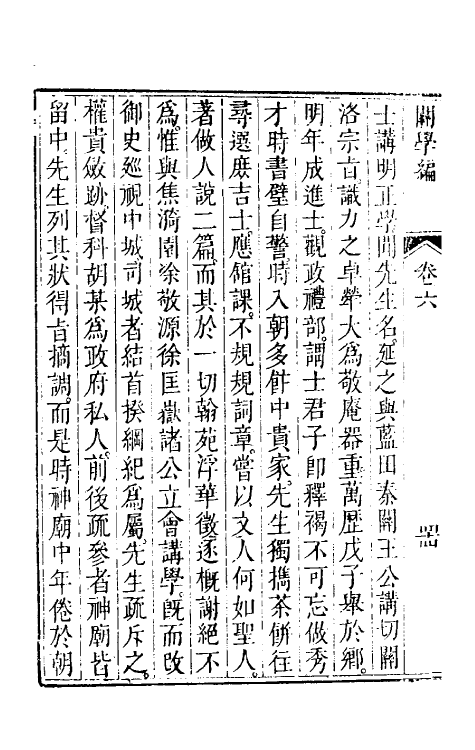 關學編
卷六
士講明正學聞先生名延之與藍田秦關王公講切關
洛宗旨識力之卓犖大為敬庵器重萬歷戊子舉於鄉
明年成進士觀政禮部謂士君子即釋褐不可忘做秀
才時書壁自警時入朝多餅中貴家先生獨攜茶餅往
尋選庶吉士應館課不規規詞章嘗以文人何如聖人
著做人說二篇而其於一切翰苑浮華徵逐概謝絕不
為惟與焦漪園涂敬源徐匡嶽諸公立會講學旣而改
御史巡視中城司城者結首揆綱紀為屬先生疏斥之
權貴斂跡督科胡某為政府私人前後疏參者神廟皆
留中先生列其狀得旨摘調而是時神廟中年倦於朝